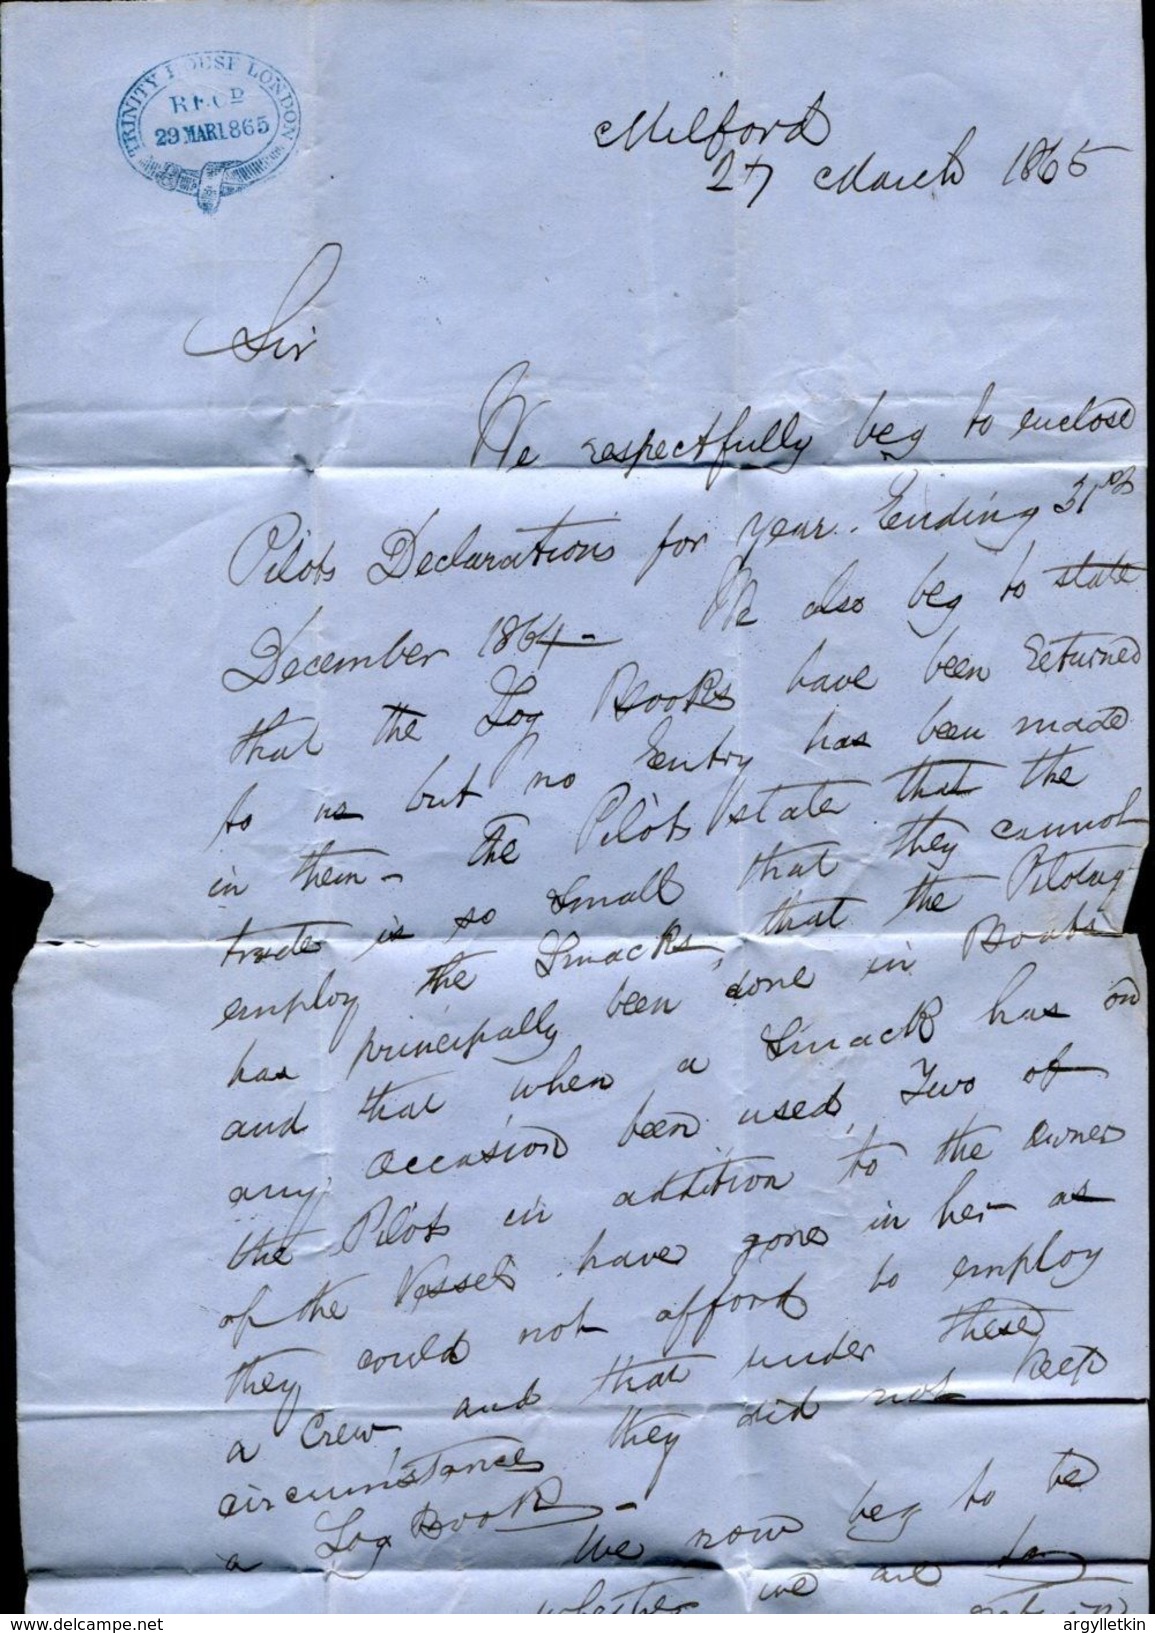 TRINITY HOUSE LONDON
REC.D
29 MAR 1865
Milford
27 March 1865
Sir
We respectfully beg to enclose
Pilots Declarations for year Ending 31st
December 1864 - We also beg to state
that the Log Books have been returned
to us but no Entry has been made
in them - The Pilots state that the
trade is so Small that they cannot
employ the Smacks, that the Pilotage
has principally been done in Boats
and that when a Smack has on
any occasion been used, Two of
the Pilots in addition to the owner
of the Vessel have gone in her as
they could not afford to employ
a Crew, and that under these
circumstances they did not Keep
a Log Book -
We now beg to be
whether we are to
delcampe.net
argylletkin